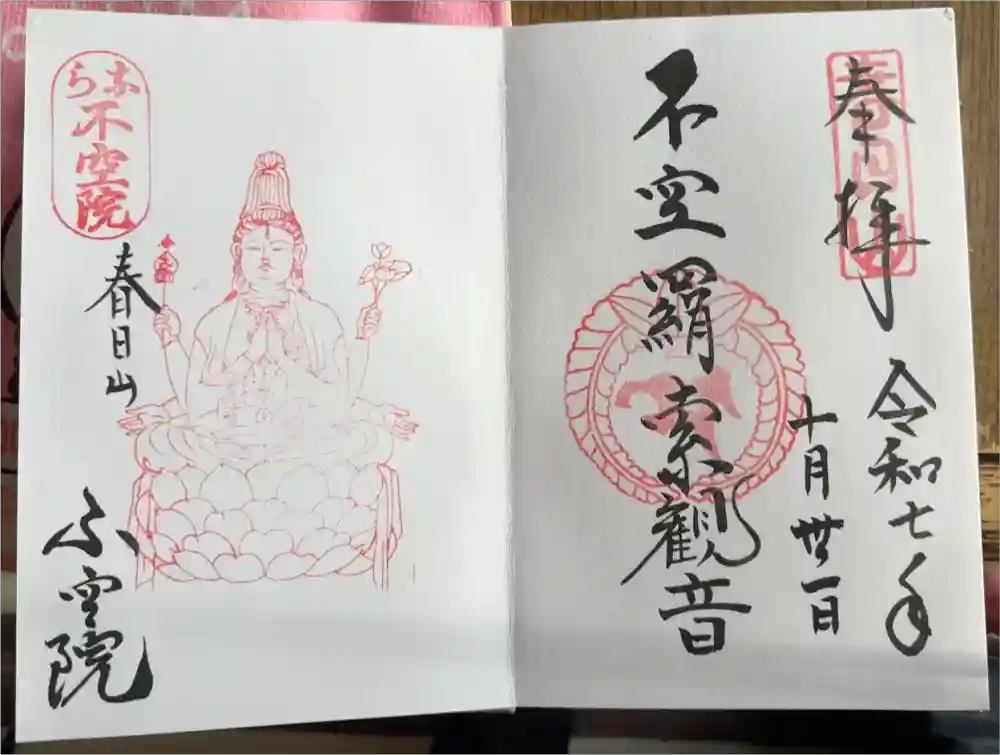 奉拝
春日山
令和七年
十月丗一日
不空羂索觀音
なら
不空院
春日山
不空院